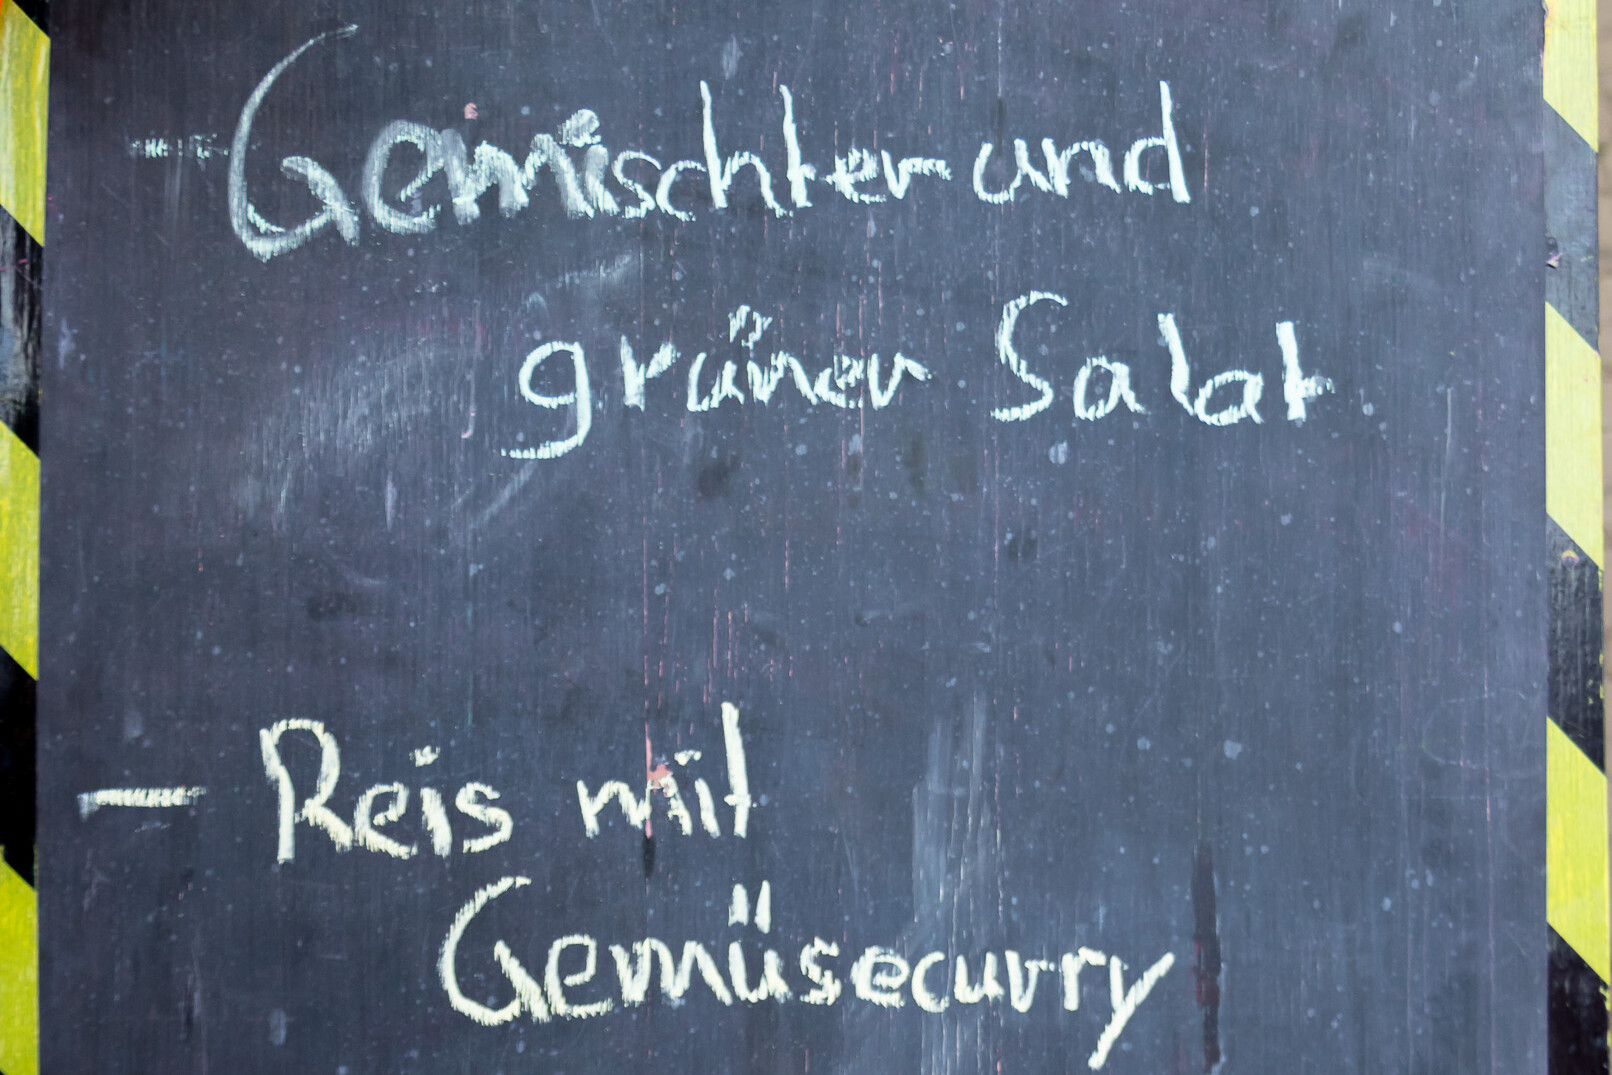 - Gemischter und
grüner Salat
- Reis mit
Gemüsecurry